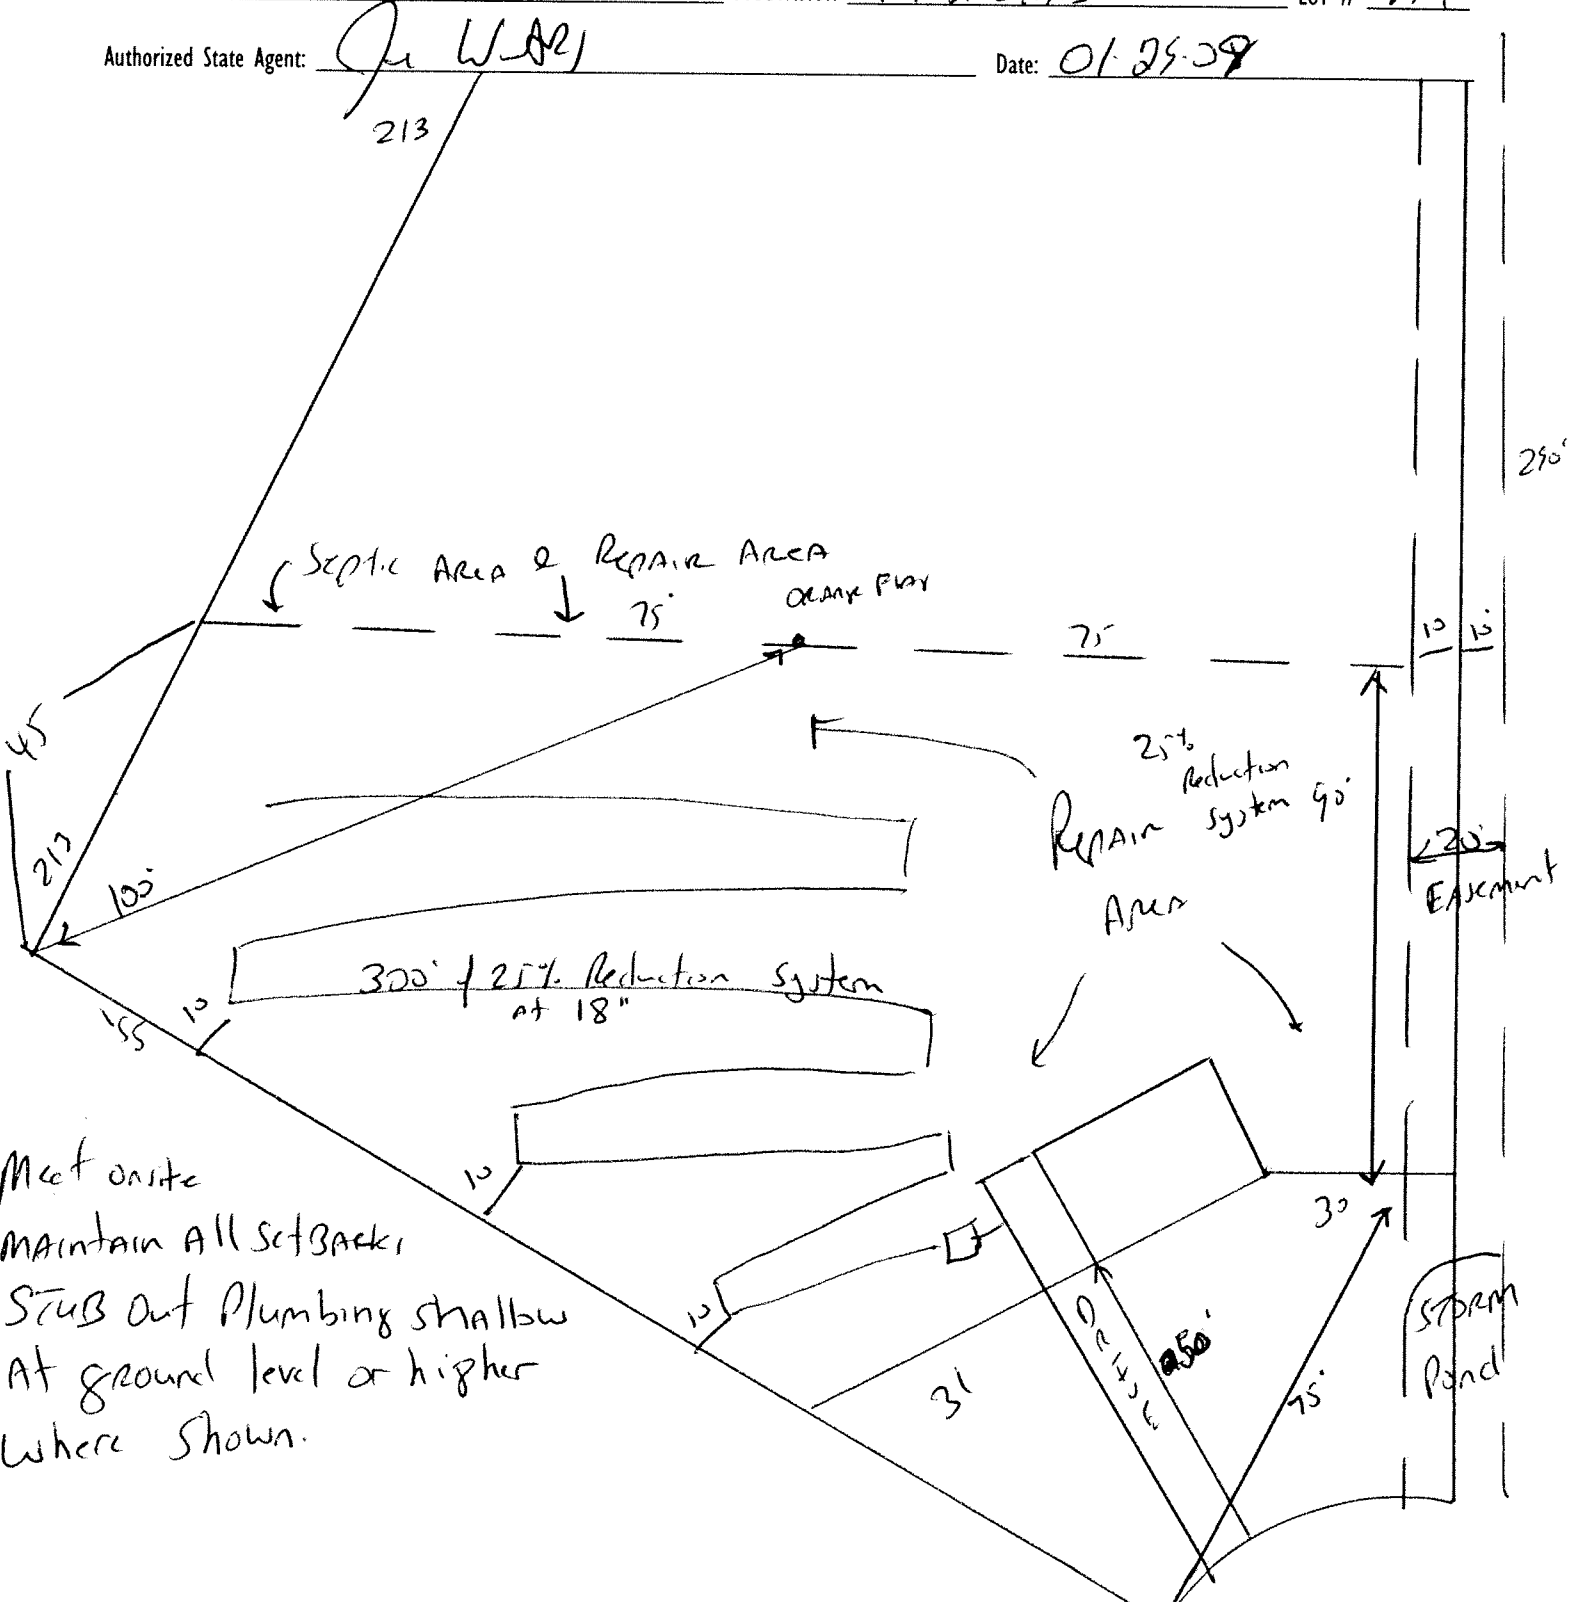 Authorized State Agent:
Date: 01-25-09
213
290'
Septic Area & Repair Area
Orange Flag
75'
75
10 10'
45
25%
Reduction
System 90'
Repair
Area
213
100'
20'
Easement
300' of 25% Reduction System
At 18"
155
10
10
10
Meet onsite
Maintain All SetBacks
STUB Out Plumbing shallow
At ground level or higher
where shown.
30
31
Drive
50'
75'
Storm
Pond